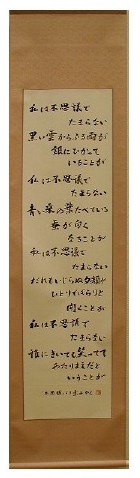 私は不思議で
たまらない
黒い雲からふる雨が
銀にひかって
いることが
私は不思議で
たまらない
青い桑の葉たべている
蚕が白く
なることが
私は不思議で
たまらない
たれもいじらぬ夕顔が
ひとりでぱらりと
開くのが
私は不思議で
たまらない
誰にきいても笑ってて
あたりまえだと
いうことが